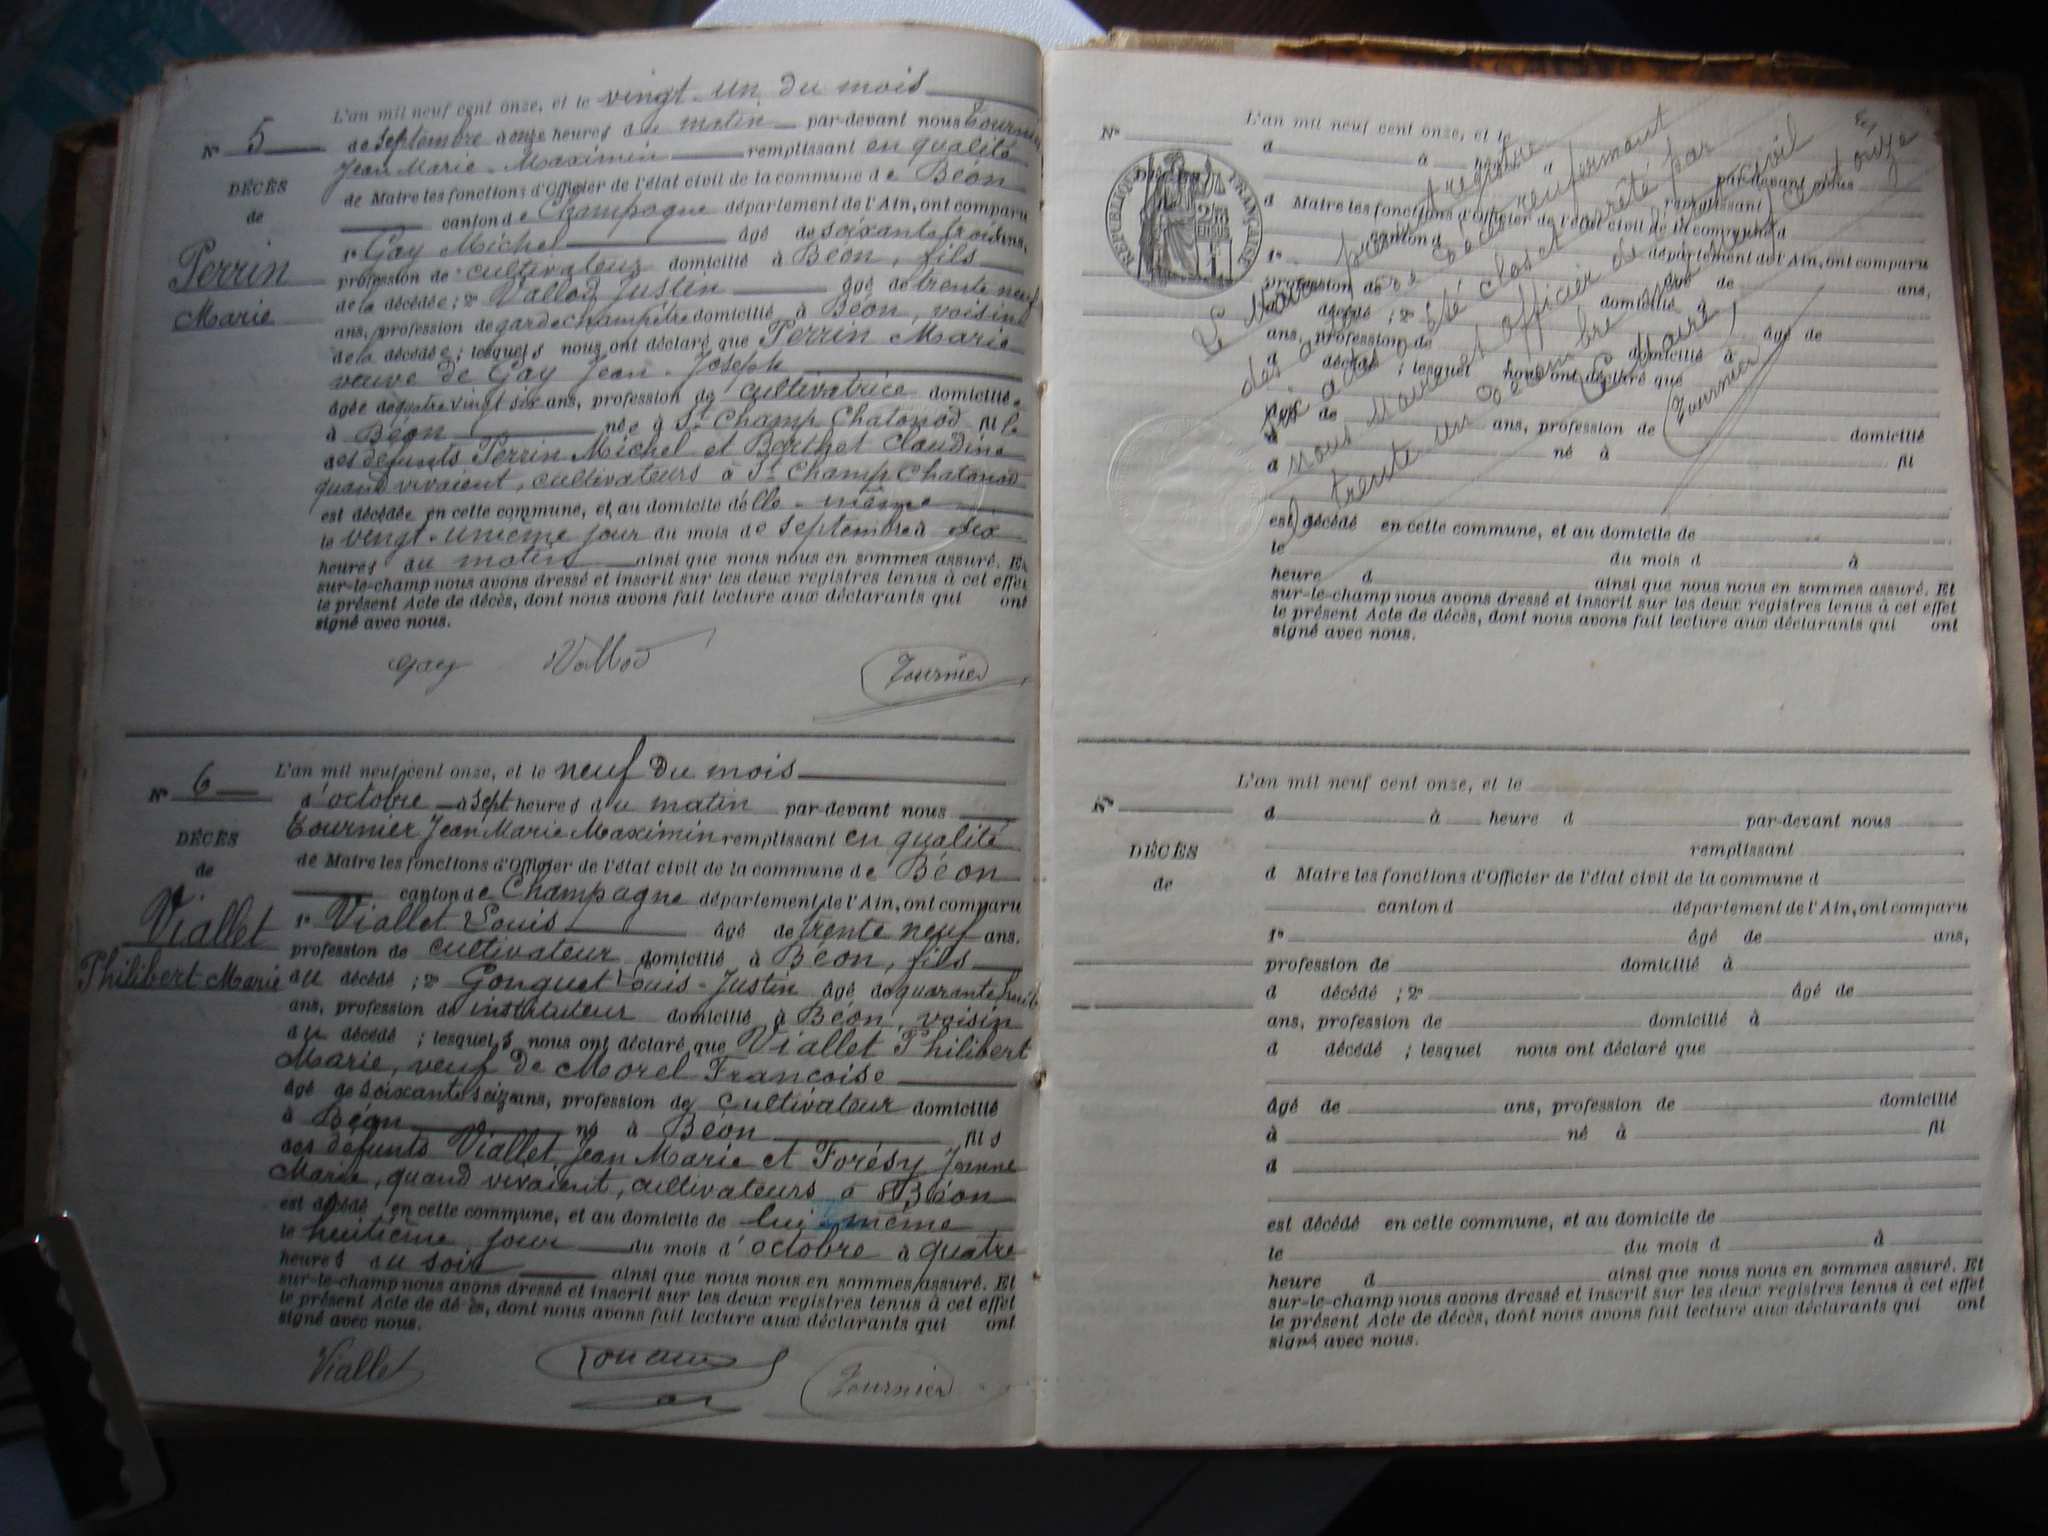 L'an mil neuf cent onze, et le vingt-un du mois
N° 5 de septembre à onze heures du matin par-devant nous Tournier
Jean Marie-Maximin remplissant en qualité
DÉCÈS
de
Perrin
Marie
de Maire les fonctions d'Officier de l'état civil de la commune de Béon
canton de Champagne département de l'Ain, ont comparu
1° Gay Michel âgé de soixante trois ans,
profession de cultivateur domicilié à Béon, fils
de la décédée ; 2° Vallod Justin âgé de trente neuf
ans, profession de garde champêtre domicilié à Béon, voisin
de la décédée ; lesquels nous ont déclaré que Perrin Marie
veuve de Gay Jean-Joseph
âgée de quatre vingt six ans, profession de cultivatrice domiciliée
à Béon née à St Champ Chatonod fille
des défunts Perrin Michel et Berthet Claudine
quand vivaient, cultivateurs à St Champ Chatonod
est décédée en cette commune, et au domicile d'elle-même
le vingt-unième jour du mois de septembre à six
heures du matin ainsi que nous nous en sommes assuré. Et
sur-le-champ nous avons dressé et inscrit sur les deux registres tenus à cet effet
le présent Acte de décès, dont nous avons fait lecture aux déclarants qui ont
signé avec nous.
Gay Vallod Tournier
L'an mil neuf cent onze, et le neuf du mois
N° 6 d'octobre à sept heures du matin par-devant nous
Tournier Jean Marie Maximin remplissant en qualité
DÉCÈS
de
Viallet
Philibert Marie
de Maire les fonctions d'Officier de l'état civil de la commune de Béon
canton de Champagne département de l'Ain, ont comparu
1° Viallet Louis âgé de trente neuf ans.
profession de cultivateur domicilié à Béon, fils
du décédé ; 2° Gonguet Louis-Justin âgé de quarante huit
ans, profession de instituteur domicilié à Béon, voisin
du décédé ; lesquels nous ont déclaré que Viallet Philibert
Marie, veuf de Morel Françoise
âgé de soixante seize ans, profession de cultivateur domicilié
à Béon né à Béon fils
des défunts Viallet Jean Marie et Forésy Jeanne
Marie, quand vivaient, cultivateurs à Béon
est décédé en cette commune, et au domicile de lui même
le huitième jour du mois d'octobre à quatre
heures du soir ainsi que nous nous en sommes assuré. Et
sur-le-champ nous avons dressé et inscrit sur les deux registres tenus à cet effet
le présent Acte de décès, dont nous avons fait lecture aux déclarants qui ont
signé avec nous.
Viallet Tournier
L'an mil neuf cent onze, et le
N°
d à heure d par-devant nous
remplissant
RÉPUBLIQUE FRANÇAISE
d Maire les fonctions d'Officier de l'état civil de la commune d
canton d département de l'Ain, ont comparu
1° âgé de ans,
profession de domicilié à
d décédé ; 2° âgé de
ans, profession de domicilié à
d décédé ; lesquel nous ont déclaré que
âgé de ans, profession de domicilié
à né à fil
d
est décédé en cette commune, et au domicile de
le du mois d à
heure d ainsi que nous nous en sommes assuré. Et
sur-le-champ nous avons dressé et inscrit sur les deux registres tenus à cet effet
le présent Acte de décès, dont nous avons fait lecture aux déclarants qui ont
signé avec nous.
Le présent registre
des actes de décès renfermant
six actes a été clos et arrêté par
nous maire et officier de l'état civil
le trente un décembre mil neuf cent onze
Le Maire,
Tournier
L'an mil neuf cent onze, et le
N°
d à heure d par-devant nous
remplissant
DÉCÈS
de
d Maire les fonctions d'Officier de l'état civil de la commune d
canton d département de l'Ain, ont comparu
1° âgé de ans,
profession de domicilié à
d décédé ; 2° âgé de
ans, profession de domicilié à
d décédé ; lesquel nous ont déclaré que
âgé de ans, profession de domicilié
à né à fil
d
est décédé en cette commune, et au domicile de
le du mois d à
heure d ainsi que nous nous en sommes assuré. Et
sur-le-champ nous avons dressé et inscrit sur les deux registres tenus à cet effet
le présent Acte de décès, dont nous avons fait lecture aux déclarants qui ont
signé avec nous.